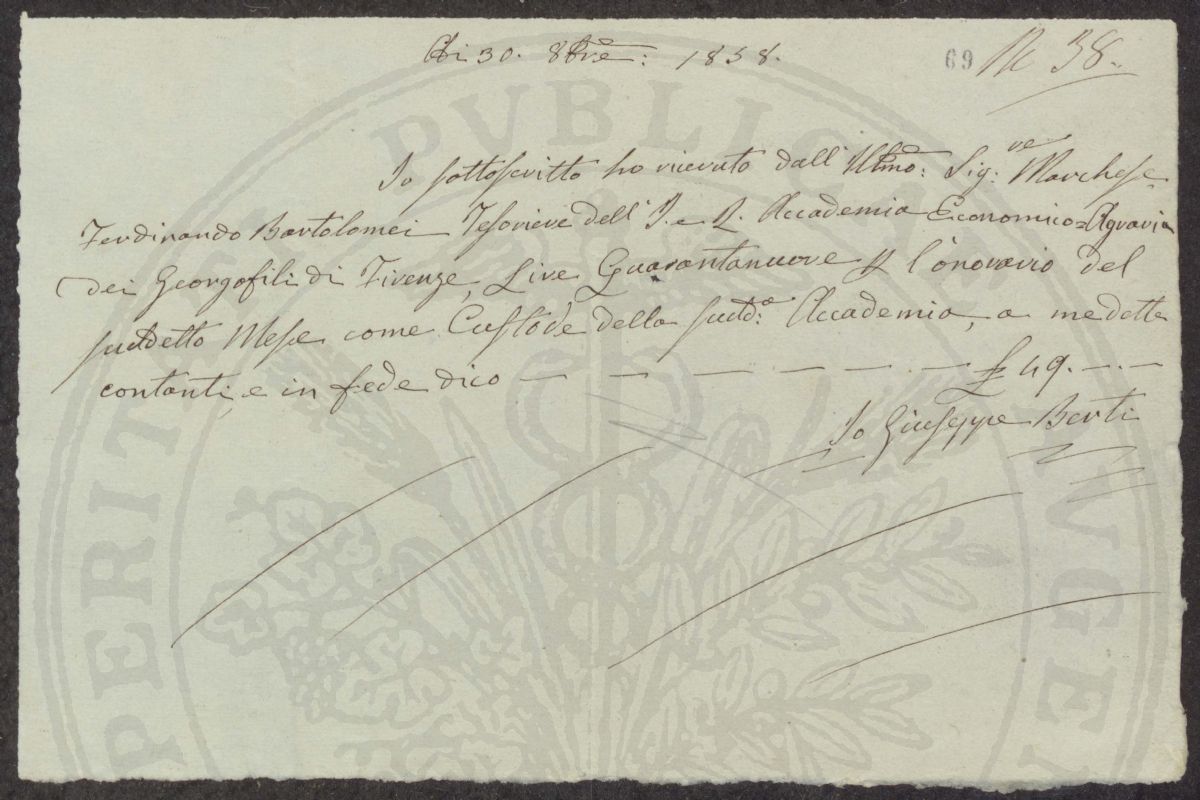 Adi 30. 8bre: 1858.
69 N 38.
Io sottoscritto ho ricevuto dall' Illmo: Sig:re Marchese
Ferdinando Bartolomei Tesoriere dell' I. e R. Accademia Economico=Agraria
dei Georgofili di Firenze, Lire Quarantanuove p l'onorario del
suddetto Mese come Custode della sudd:a Accademia, a me dette
contanti, e in fede dico — — — — — — — £ 49. — . —
Io Giuseppe Berti
PERITIAE PUBLICAE AUGE